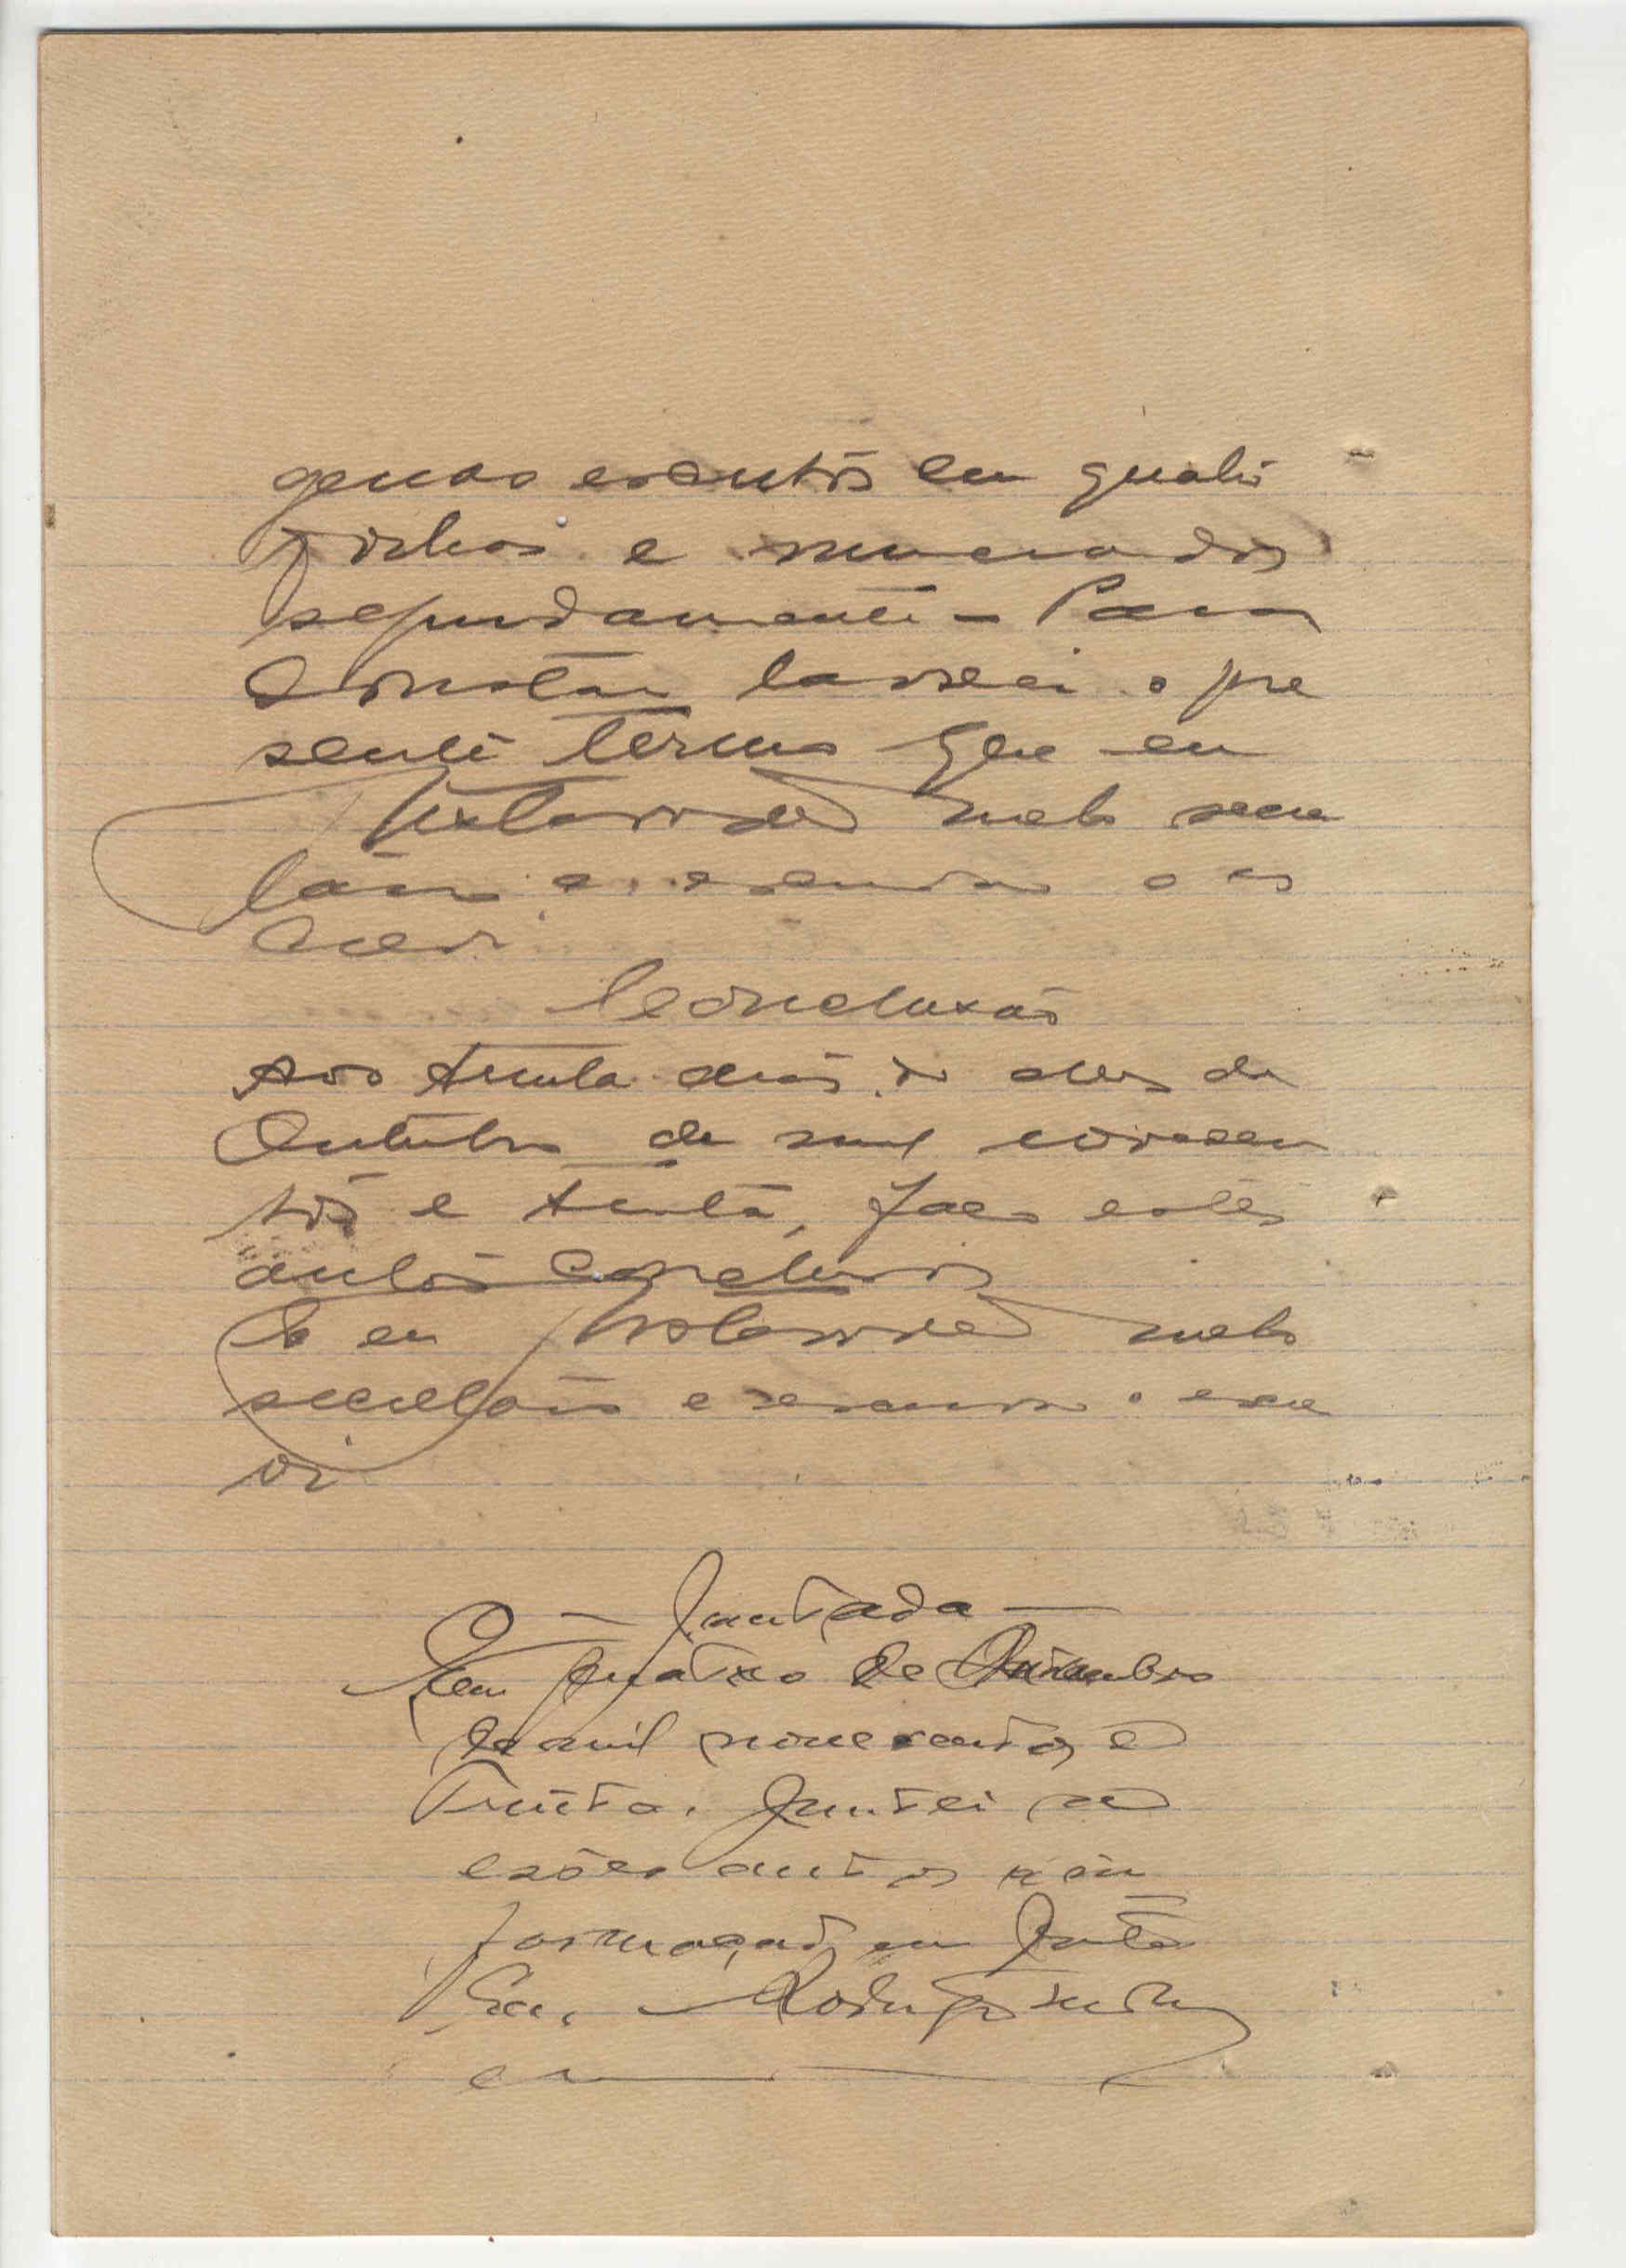 genas escriptos em quatro
folhas e numerados
seguidamente - Para
constar lavrei o pre
sente termo que eu
Mello secre
tario e escrivão o es
crevi
Conclusão
Aos trinta dias do mes de
Outubro de mil novecen
tos e trinta, faço estes
autos conclusos
E eu Mello
secretario e escrivão o escre
vi
Juntada
Em quatro de Novembro
de mil novecentos e
trinta. Juntei a
estes autos a in
formação em frente
Eu,